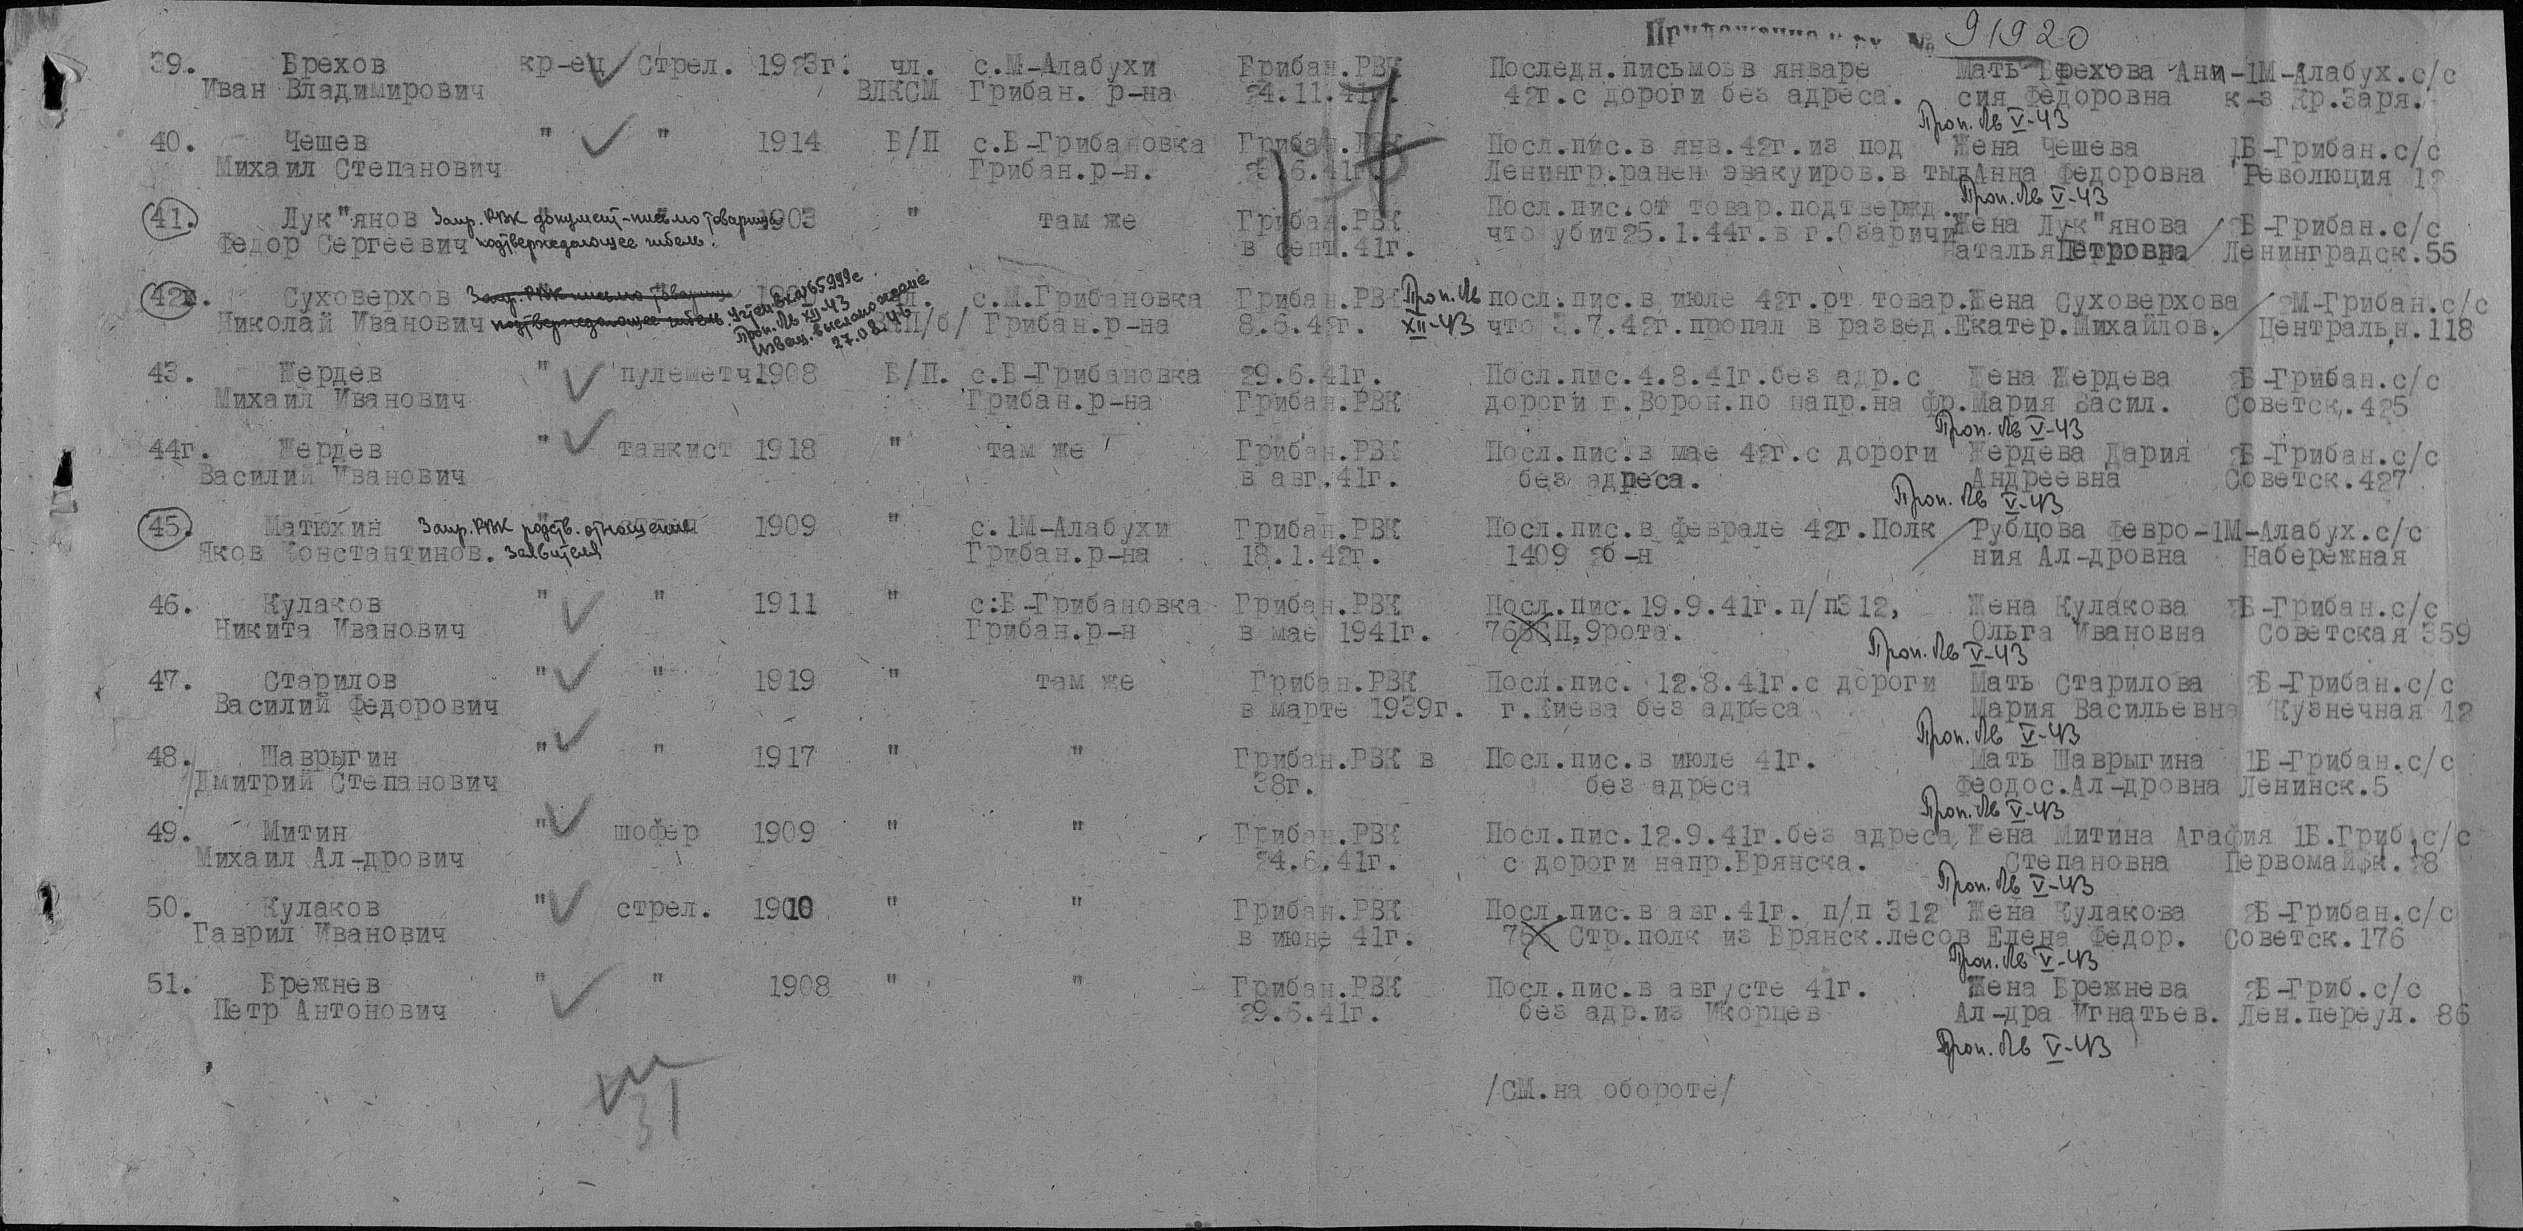 Приложение к вх. № 91920
39. Брехов кр-ец Стрел. 1923г. чл. с.М-Алабухи Грибан.РВК Последн.письмо в январе Мать Брехова Ани-1М-Алабух.с/с
Иван Владимирович ВЛКСМ Грибан. р-на 24.11.41г. 42г.с дороги без адреса. сия Федоровна к-з Кр.Заря.
Проп. Лв V-43
40. Чешев " " 1914 Б/П с.Б-Грибановка Грибан.РВК Посл.пис.в янв.42г.из под Жена Чешева 1Б-Грибан.с/с
Михаил Степанович Грибан.р-н. 6.41г. Ленингр.ранен эвакуиров.в тыл Анна Федоровна Революция 12
Проп. Лв V-43
41. Лук"янов Запр. РВК документ-письмо товарища 1903 " там же Грибан.РВК Посл.пис.от товар.подтвержд. Жена Лук"янова 2Б-Грибан.с/с
Федор Сергеевич подтверждающее гибель. в сент.41г. что убит 25.1.44г.в г.Озаричи аталья Петровна Ленинградск.55
42г. Суховерхов Запр. РВК письмо товарища учтен вх.№65999с с.М.Грибановка Грибан.РВК Проп. Лв посл.пис.в июле 42г.от товар.Жена Суховерхова 2М-Грибан.с/с
Николай Иванович подтверждающее гибель. Проп. Лв XII-43 /б/ Грибан.р-на 8.6.42г. XII-43 что 3.7.42г.пропал в развед.Екатер.Михайлов. Центральн.118
Извещ. выслано 27.08.46
43. Жердев " пулеметч.1908 Б/П. с.Б-Грибановка 29.6.41г. Посл.пис.4.8.41г.без адр.с Жена Жердева 2Б-Грибан.с/с
Михаил Иванович Грибан.р-на Грибан.РВК дороги г.Ворон.по напр.на фр.Мария Васил. Советск.425
Проп. Лв V-43
44г. Жердев " танкист 1918 " там же Грибан.РВК Посл.пис.в мае 42г.с дороги Жердева Дария 2Б-Грибан.с/с
Василий Иванович в авг.41г. без адреса. Андреевна Советск.427
Проп. Лв V-43
45. Матюхин Запр. РВК родств. отношение 1909 " с.1М-Алабухи Грибан.РВК Посл.пис.в феврале 42г.Полк Рубцова Февро-1М-Алабух.с/с
Яков Константинов. заявителя Грибан.р-на 18.1.42г. 1409 2б-н ния Ал-дровна Набережная
46. Кулаков " " 1911 " с:Б-Грибановка Грибан.РВК Посл.пис.19.9.41г.п/п312, Жена Кулакова 2Б-Грибан.с/с
Никита Иванович Грибан.р-н в мае 1941г. 766СП,9рота. Ольга Ивановна Советская 359
Проп. Лв V-43
47. Старилов " " 1919 " там же Грибан.РВК Посл.пис. 12.8.41г.с дороги Мать Старилова 2Б-Грибан.с/с
Василий Федорович в марте 1939г. г.Киева без адреса Мария Васильевна Кузнечная 12
Проп. Лв V-43
48. Шаврыгин " " 1917 " " Грибан.РВК в Посл.пис.в июле 41г. Мать Шаврыгина 1Б-Грибан.с/с
Дмитрий Степанович 38г. без адреса Феодос.Ал-дровна Ленинск.5
Проп. Лв V-43
49. Митин " шофер 1909 " " Грибан.РВК Посл.пис.12.9.41г.без адреса Жена Митина Агафия 1Б.Гриб.с/с
Михаил Ал-дрович 24.6.41г. с дороги напр.Брянска. Степановна Первомайск.28
Проп. Лв V-43
50. Кулаков " стрел. 1910 " " Грибан.РВК Посл.пис.в авг.41г. п/п 312 Жена Кулакова 2Б-Грибан.с/с
Гаврил Иванович в июне 41г. 766 Стр.полк из Брянск.лесов Елена Федор. Советск.176
Проп. Лв V-43
51. Брежнев " " 1908 " " Грибан.РВК Посл.пис.в августе 41г. Жена Брежнева 2Б-Гриб.с/с
Петр Антонович 29.6.41г. без адр.из Икорцев Ал-дра Игнатьев. Лен.переул. 86
Проп. Лв V-43
/СМ.на обороте/
31